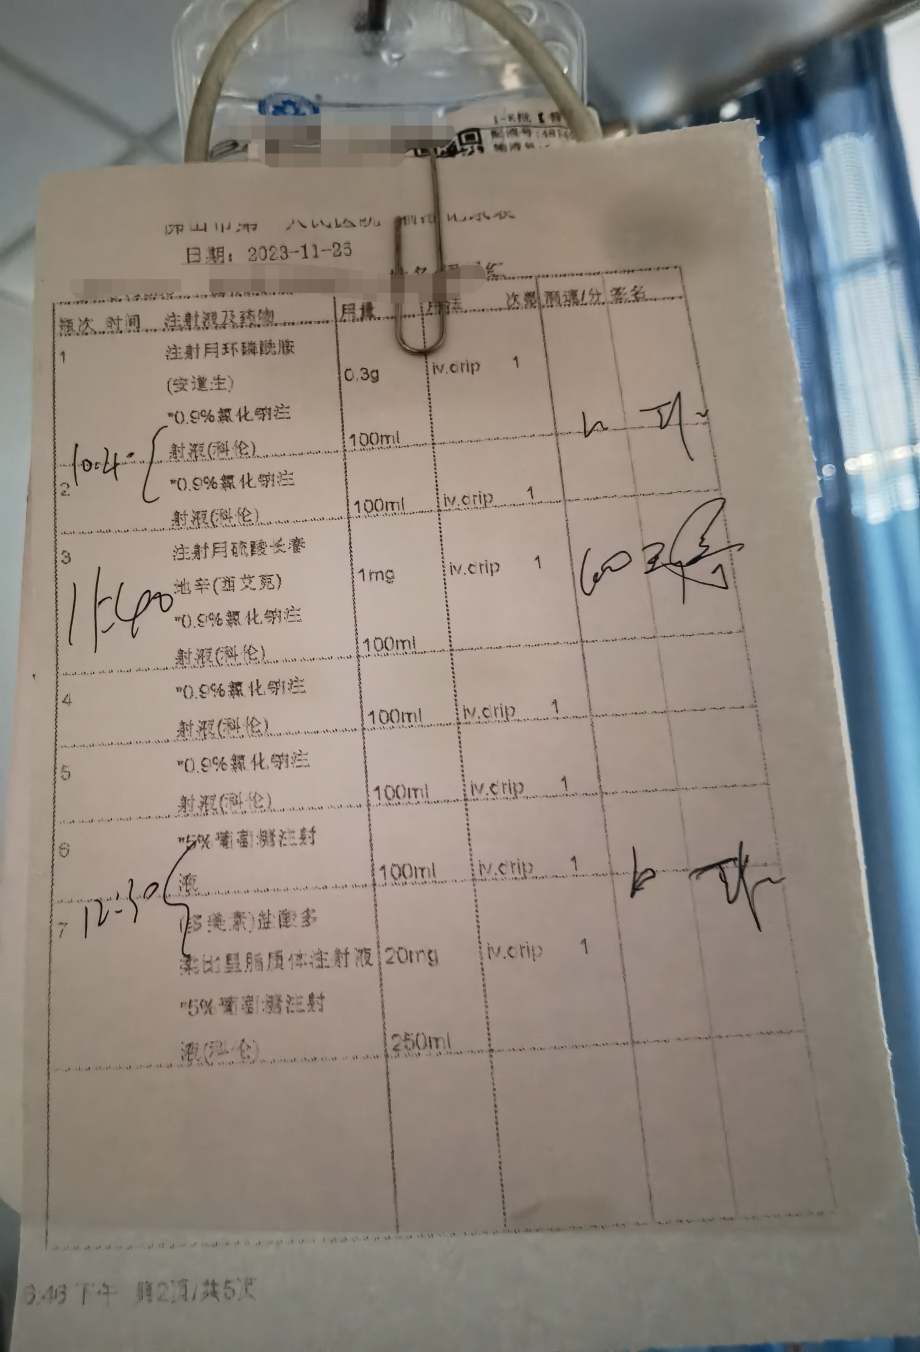 日期：2023-11-25
瓶次 时间 注射液及药物 用量 用法 次数 滴速/分 签名
1 注射用环磷酰胺
(安道生) 0.3g iv.drip 1
"0.9%氯化钠注
射液(科伦) 100ml
10:4
2 "0.9%氯化钠注
射液(科伦) 100ml iv.drip 1
3 注射用硫酸长春
地辛(西艾克) 1mg iv.drip 1
11:40 60
"0.9%氯化钠注
射液(科伦) 100ml
4 "0.9%氯化钠注
射液(科伦) 100ml iv.drip 1
5 "0.9%氯化钠注
射液(科伦) 100ml iv.drip 1
6 "5%葡萄糖注射
液 100ml iv.drip 1
12:30
7 (多美素)盐酸多
柔比星脂质体注射液 20mg iv.drip 1
"5%葡萄糖注射
液(科伦) 250ml
下午 第2页/共5页